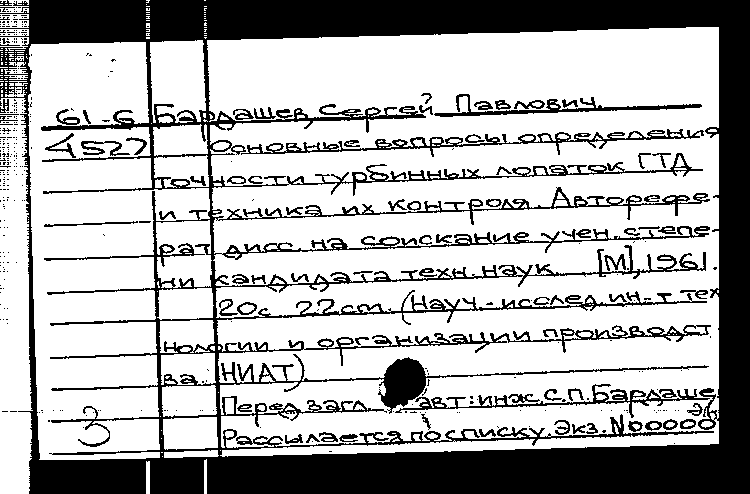 61-6 Бардашев, Сергей Павлович.
4527 Основные вопросы определения
точности турбинных лопаток ГТД
и техника их контроля. Авторефе-
рат дисс. на соискание учен. степе-
ни кандидата техн. наук. [М], 1961.
20с 22cm. (Науч.-исслед. ин-т тех
нологии и организации производст
ва НИАТ).
Перед загл. авт: инж. С.П. Бардаше
3 Рассылается по списку. Экз. №00000